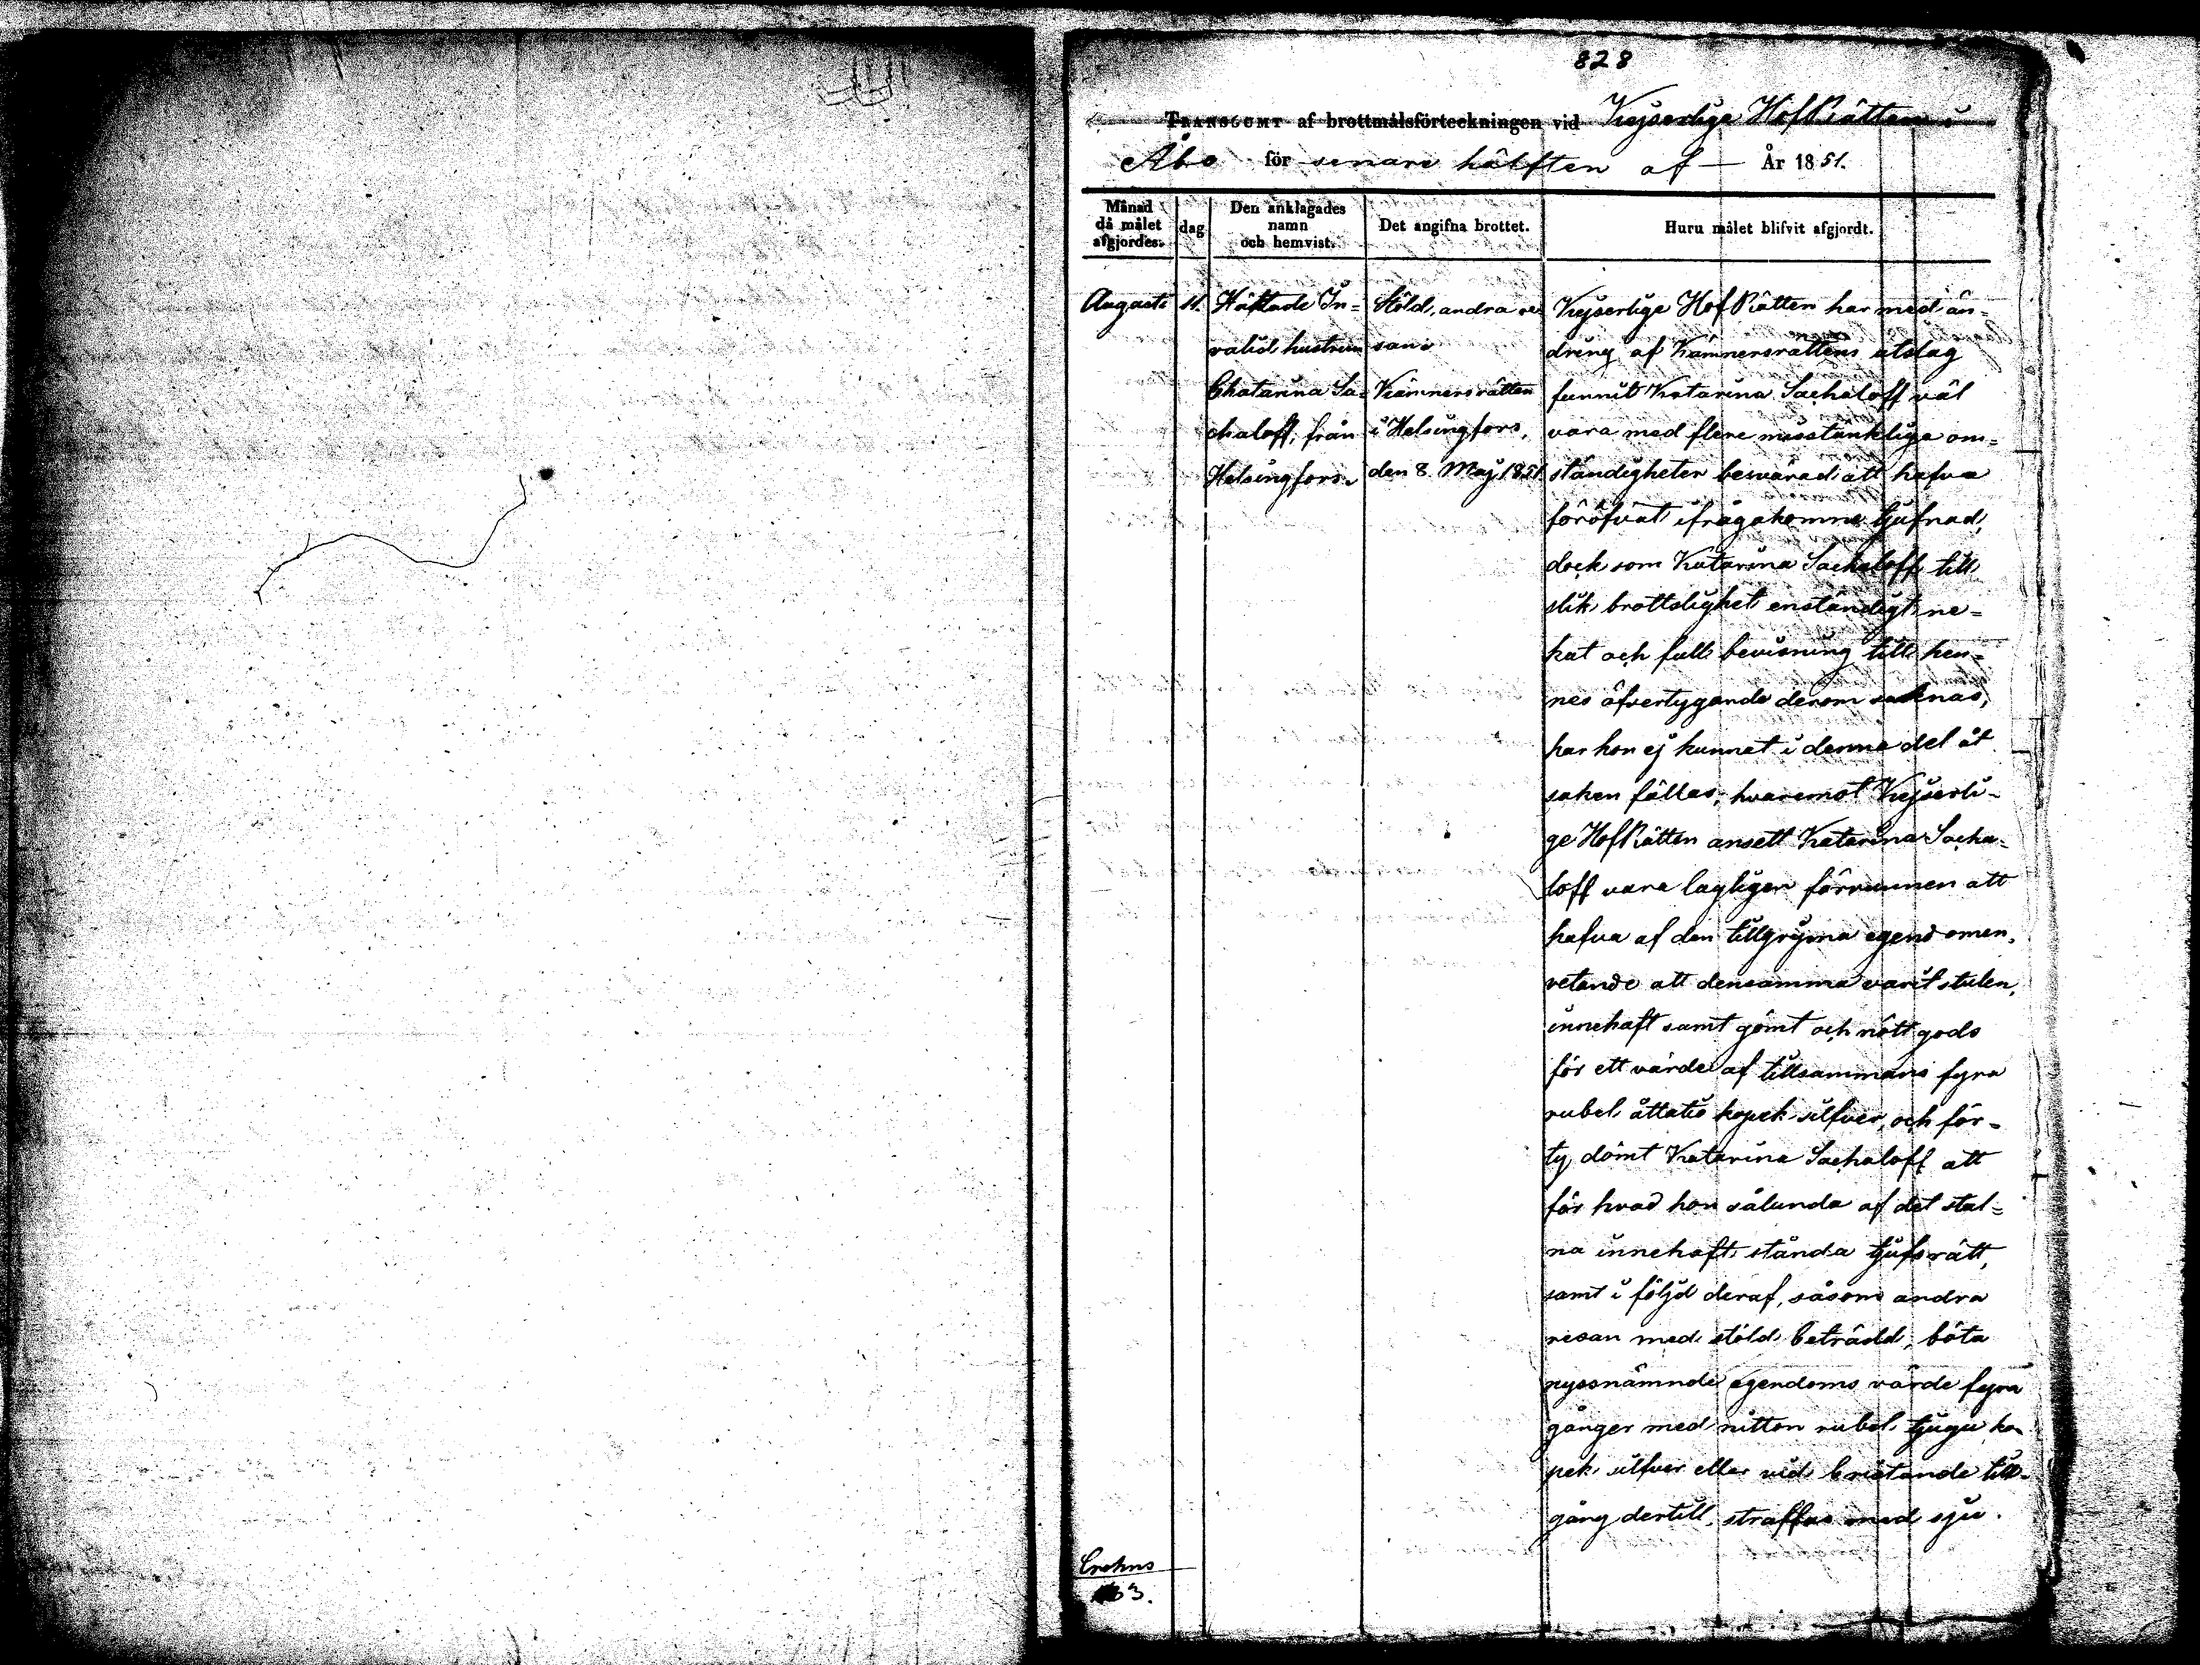 828
TRANSSUMT af brottmålsförteckningen vid Kejserlige HofRätten i
Åbo för senare hälften af År 1851.
Månad då målet afgjordes.
dag
Den anklagades namn och hemvist.
Det angifna brottet.
Huru målet blifvit afgjordt.
Augusti
11.
Häktade In-
valid hustrun
Chatarina Sa-
chaloff, från
Helsingfors.
Stöld, andra re-
san.
Kämnersrätten
i Helsingfors,
den 8 Maj 1851
Kejserlige HofRätten har med än-
dring af Kämnersrättens utslag
funnit Katarina Sachaloff väl
vara med flere misstänklige om-
ständigheter besvärad att hafva
föröfvat ifrågakomne tjufnad,
dock som Katarina Sachaloff till
slik brottslighet enständigt ne-
kat och full bevisning till hen-
nes öfvertygande derom saknas,
har hon ej kunnat i denna del åt
saken fällas; hvaremot Kejserli-
ge HofRätten ansett Katarina Sacha-
loff vara lagligen förvunnen att
hafva af den tillgripna egendomen,
vetande att densamma varit stulen,
innehaft samt gömt och nött gods
för ett värde af tillsammans fyra
rubel åttatio kopek silfver, och för-
ty dömt Katarina Sachaloff att
för hvad hon sålunda af det stul-
na innehaft stånda tjufsrätt,
samt i följd deraf, såsom andra
resan med stöld beträdd, böta
nyssnämnde egendoms värde fyra
gånger med nitton rubel tjugu ko-
pek silfver eller vid bristande till-
gång dertill, straffas med sju.
Crohns
3.